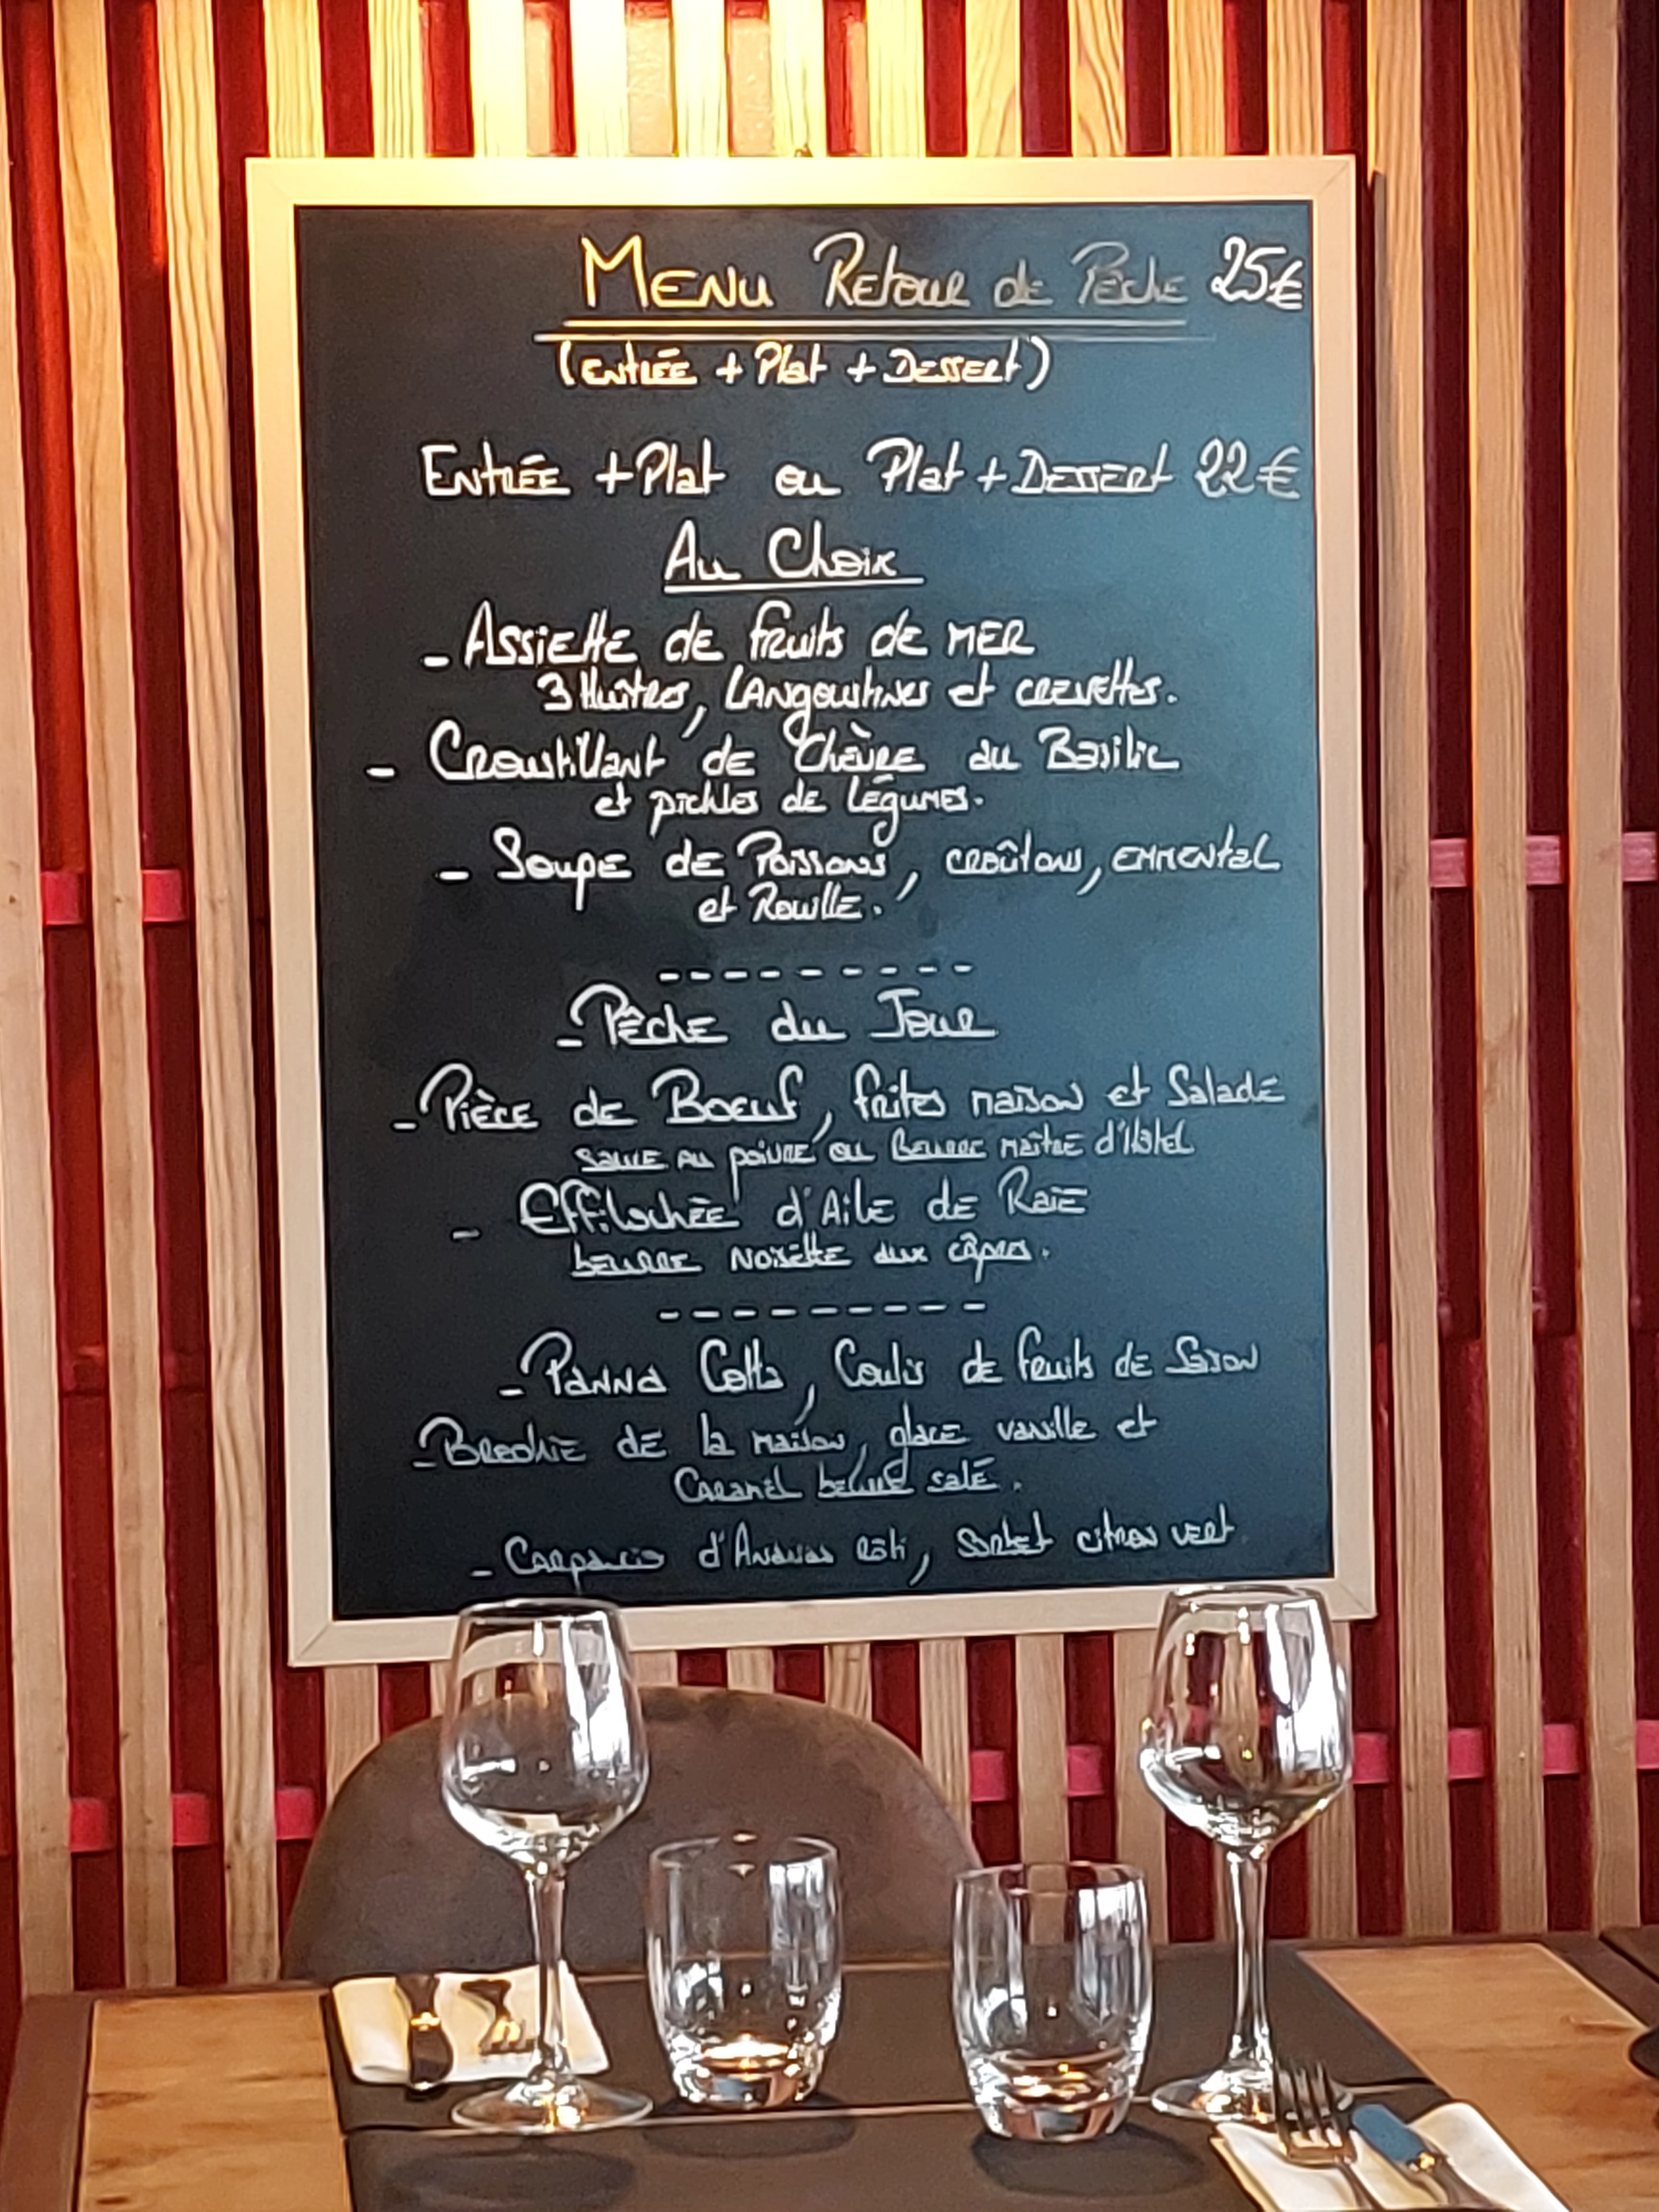 MENU Retour de Pêche 25€
(Entrée + Plat + Dessert)
Entrée + Plat ou Plat + Dessert 22€
Au Choix
- Assiette de fruits de MER
3 Huîtres, Langoustines et crevettes.
- Croustillant de Chèvre au Basilic
et pickles de légumes.
- Soupe de Poissons, croûtons, emmental
et Rouille.
- - - - - - - - - -
- Pêche du Jour
- Pièce de Boeuf, frites maison et Salade
sauce au poivre ou Beurre maître d'Hôtel
- Effilochée d'Aile de Raie
beurre noisette aux câpres.
- - - - - - - - - -
- Panna Cotta, Coulis de fruits de Saison
- Brioche de la maison, glace vanille et
Caramel beurre salé.
- Carpaccio d'Ananas rôti, sorbet citron vert